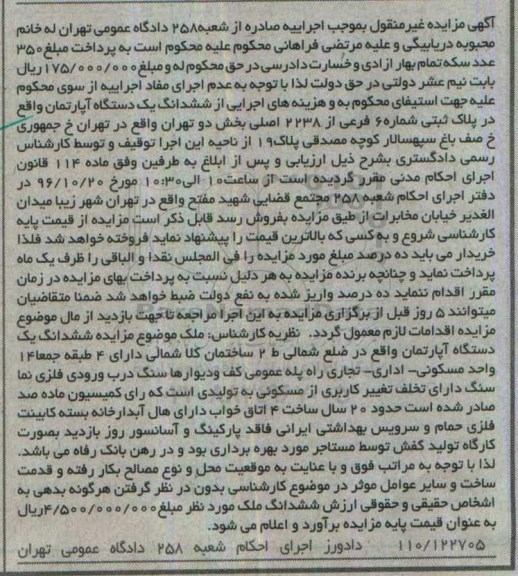 آگهی مزایده غیر منقول بموجب اجراییه صادره از شعبه ۲۵۸ دادگاه عمومی تهران له خانم
محبوبه دریابیگی و علیه مرتضی فراهانی محکوم علیه محکوم است به پرداخت مبلغ ۳۵۰
عدد سکه تمام بهار ازادی و خسارت دادرسی در حق محکوم له و مبلغ ۱۷۵/۰۰۰/۰۰۰ ریال
بابت نیم عشر دولتی در حق دولت لذا با توجه به عدم اجرای مفاد اجراییه از سوی محکوم
علیه جهت استیفای محکوم به و هزینه های اجرایی از ششدانگ یک دستگاه آپارتمان واقع
در پلاک ثبتی شماره ۶ فرعی از ۲۲۳۸ اصلی بخش دو تهران واقع در تهران خ جمهوری
خ صف باغ سپهسالار کوچه مصدقی پلاک ۱۹ از ناحیه این اجرا توقیف و توسط کارشناس
رسمی دادگستری بشرح ذیل ارزیابی و پس از ابلاغ به طرفین وفق ماده ۱۱۴ قانون
اجرای احکام مدنی مقرر گردیده است از ساعت ۱۰ الی ۱۰:۳۰ مورخ ۹۶/۱۰/۲۰ در
دفتر اجرای احکام شعبه ۲۵۸ مجتمع قضایی شهید مفتح واقع در تهران شهر زیبا میدان
الغدیر خیابان مخابرات از طیق مزایده بفروش رسد قابل ذکر است مزایده از قیمت پایه
کارشناسی شروع و به کسی که بالاترین قیمت را پیشنهاد نماید فروخته خواهد شد فلذا
خریدار می باید ده درصد مبلغ مورد مزایده را فی المجلس نقدا و الباقی را ظرف یک ماه
پرداخت نماید و چنانچه برنده مزایده به هر دلیل نسبت به پرداخت بهای مزایده در زمان
مقرر اقدام ننماید ده درصد واریز شده به نفع دولت ضبط خواهد شد ضمنا متقاضیان
میتوانند ۵ روز قبل از برگزاری مزایده به این اجرا مراجعه تا جهت بازدید از مال موضوع
مزایده اقدامات لازم معمول گردد. نظریه کارشناس: ملک موضوع مزایده ششدانگ یک
دستگاه آپارتمان واقع در ضلع شمالی ط ۲ ساختمان کلا شمالی دارای ۴ طبقه جمعا ۱۴
واحد مسکونی- اداری- تجاری راه پله عمومی کف و دیوارها سنگ درب ورودی فلزی نما
سنگ دارای تخلف تغییر کاربری از مسکونی به تولیدی است که رای کمیسیون ماده صد
صادر شده است حدود ۲۰ سال ساخت ۴ اتاق خواب دارای هال آبدارخانه بسته کابینت
فلزی حمام و سرویس بهداشتی ایرانی فاقد پارکینگ و آسانسور روز بازدید بصورت
کارگاه تولید کفش توسط مستاجر مورد بهره برداری بود و در رهن بانک رفاه می باشد.
لذا با توجه به مراتب فوق و با عنایت به موقعیت محل و نوع مصالح بکار رفته و قدمت
ساخت و سایر عوامل موثر در موضوع کارشناسی بدون در نظر گرفتن هرگونه بدهی به
اشخاص حقیقی و حقوقی ارزش ششدانگ ملک مورد نظر مبلغ ۴/۵۰۰/۰۰۰/۰۰۰ ریال
به عنوان قیمت پایه مزایده برآورد و اعلام می شود.
۱۱۰/۱۲۲۷۰۵ دادورز اجرای احکام شعبه ۲۵۸ دادگاه عمومی تهران